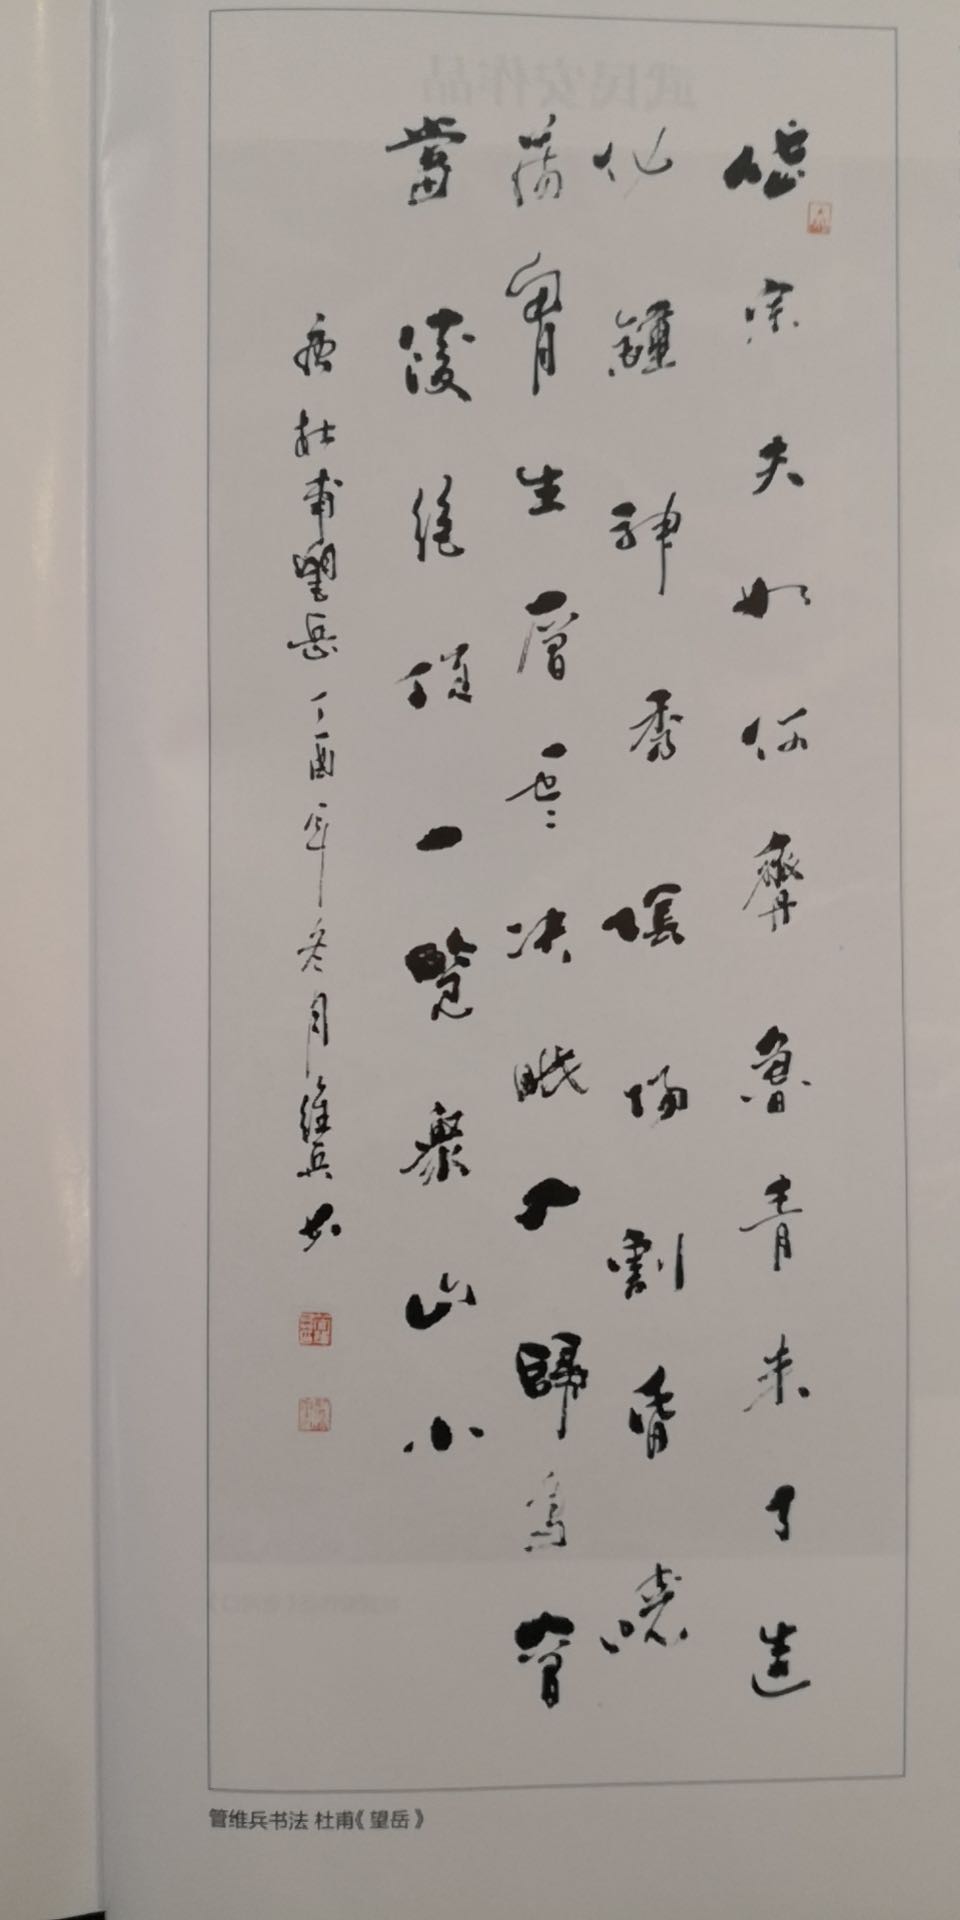 岱宗夫如何齊魯青未了造
化鍾神秀陰陽割昏曉
蕩胷生層雲決眦入歸鳥會
當凌絕頂一覽衆山小
唐杜甫望岳丁酉年冬月維兵书
管维兵书法 杜甫《望岳》